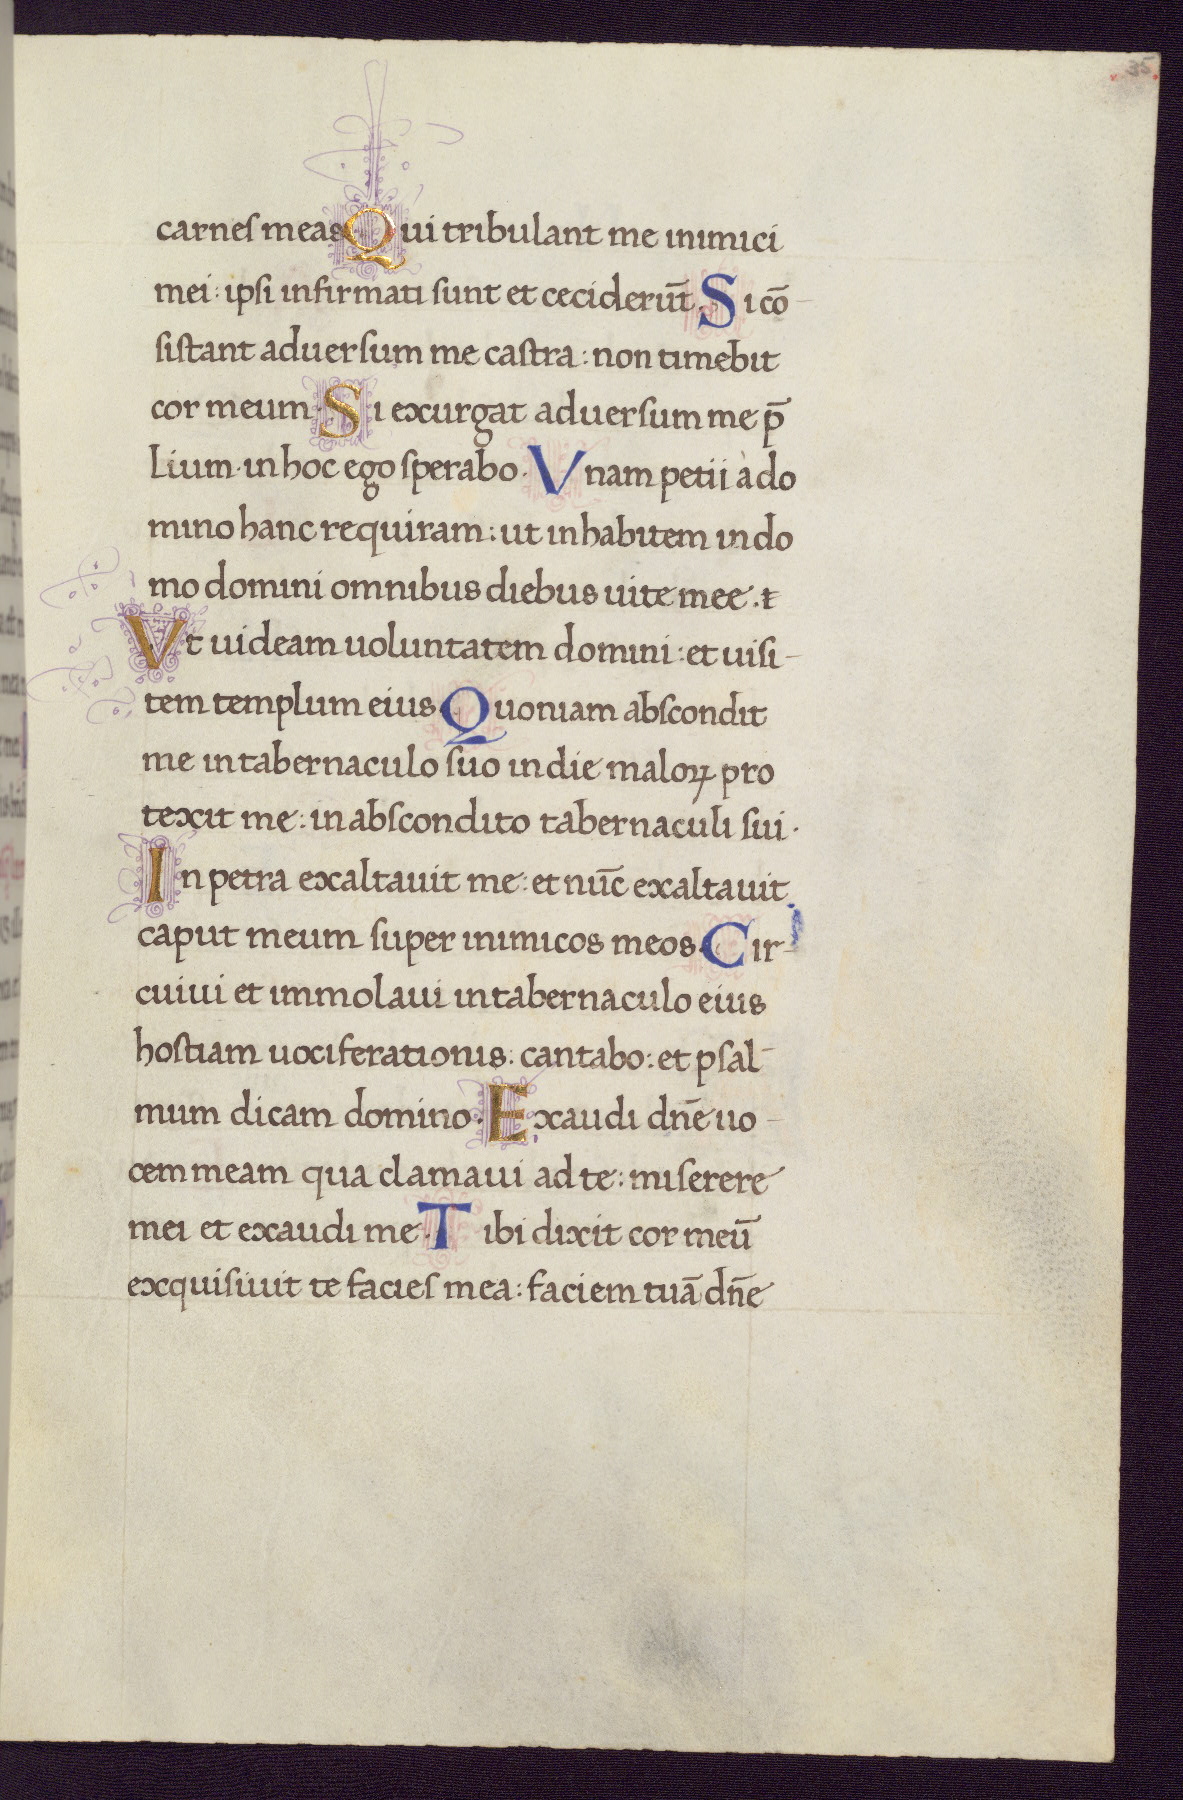 35
carnes meas Qui tribulant me inimici
mei: ipsi infirmati sunt et ceciderūt. Si cō-
sistant aduersum me castra: non timebit
cor meum. Si exurgat aduersum me p̄
lium· in hoc ego sperabo. Vnam petii à do
mino hanc requiram: ut inhabitem in do
mo domini omnibus diebus uite mee .t
Vt uideam uoluntatem domini: et uisi-
tem templum eius. Quoniam abscondit
me in tabernaculo suo in die maloꝝ pro
texit me: in abscondito tabernaculi sui.
In petra exaltauit me: et nūc exaltauit
caput meum super inimicos meos. Cir-
cuiui et immolaui in tabernaculo eius
hostiam uociferationis: cantabo: et psal-
mum dicam domino. Exaudi dn̄e uo-
cem meam qua clamaui ad te: miserere
mei et exaudi me. Tibi dixit cor meū
excquisiuit te facies mea: faciem tuā dn̄e